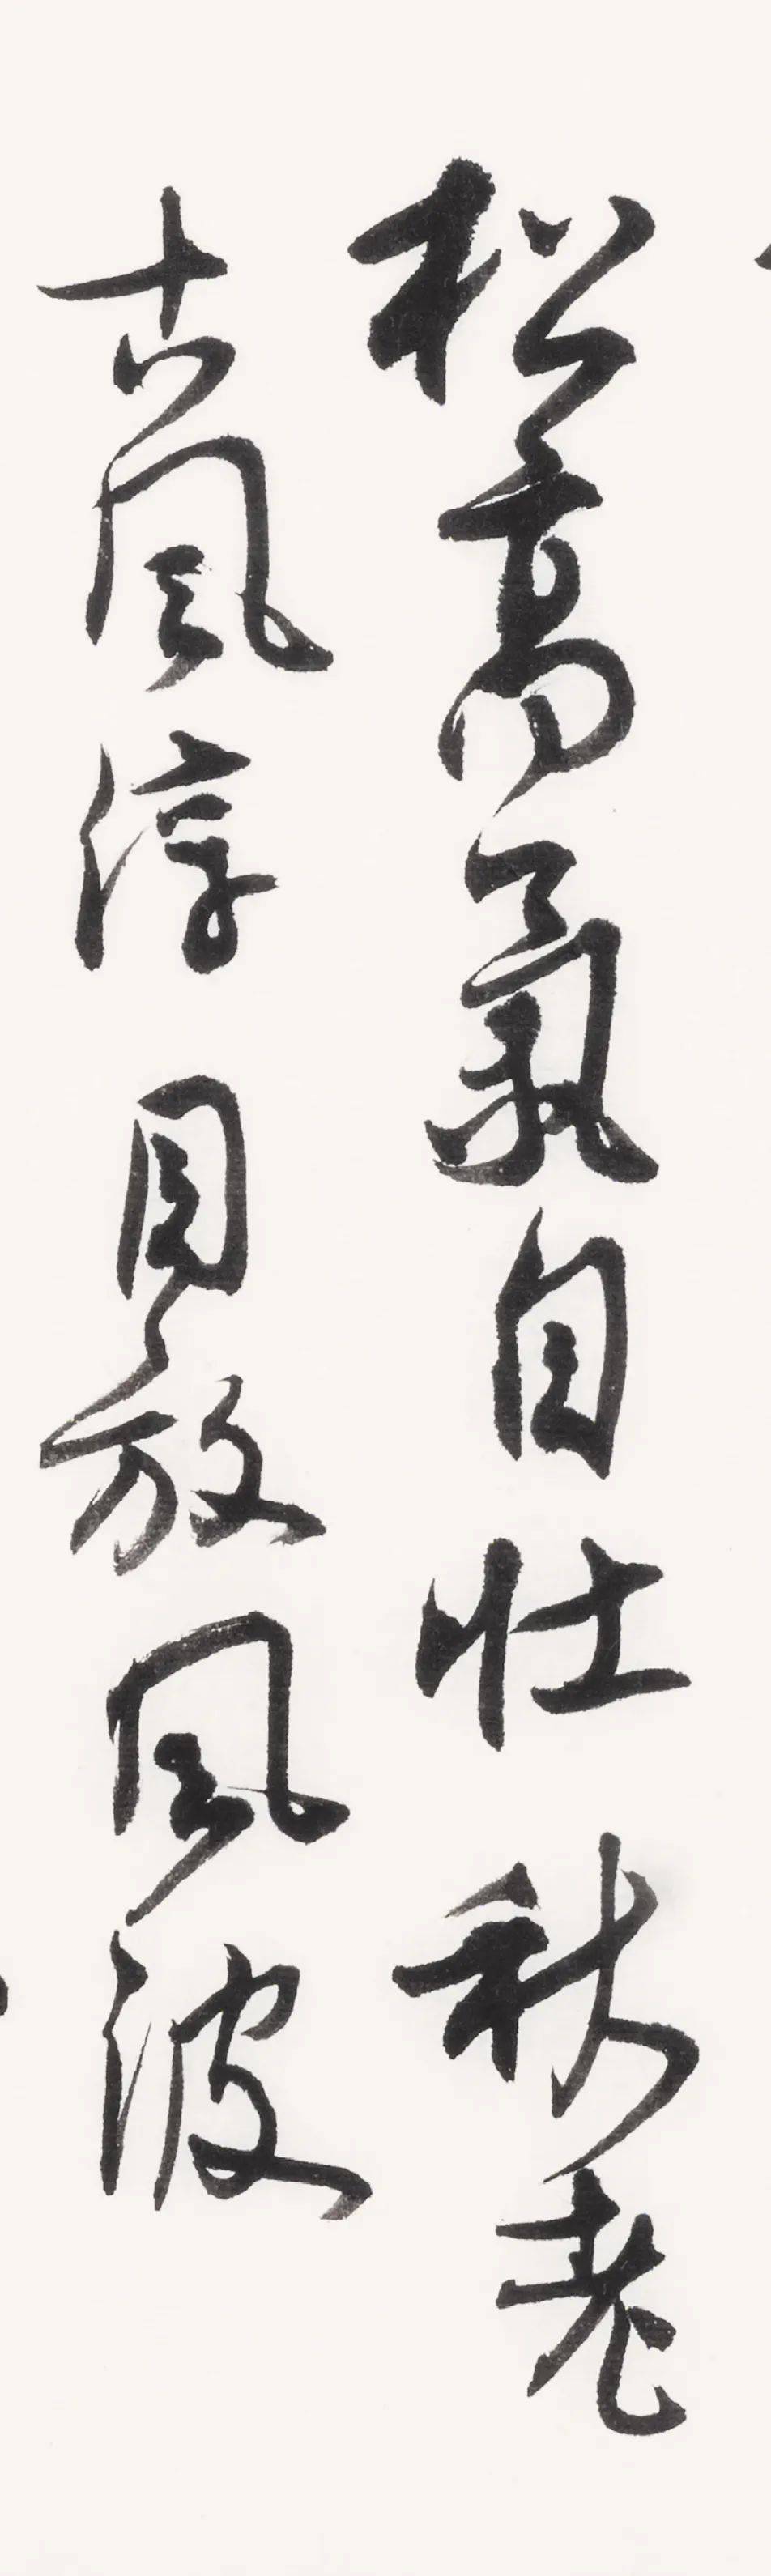 松高氣自壮秋老
古風淳目放風波